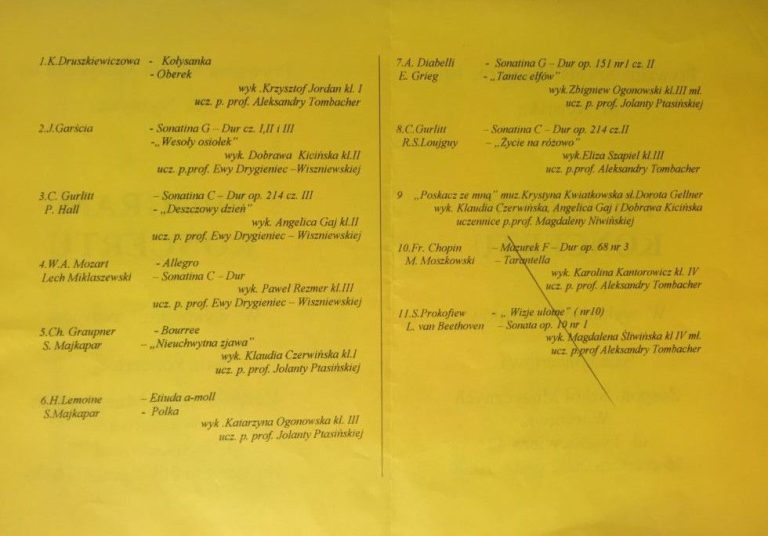 1.K.Druszkiewiczowa - Kołysanka
- Oberek
wyk .Krzysztof Jordan kl. I
ucz. p. prof. Aleksandry Tombacher
2.J.Garścia - Sonatina G – Dur cz. I,II i III
-„Wesoły osiołek"
wyk. Dobrawa Kicińska kl.II
ucz. p.prof. Ewy Drygieniec –Wiszniewskiej
3.C. Gurlitt – Sonatina C – Dur op. 214 cz. III
P. Hall - „Deszczowy dzień"
wyk. Angelica Gaj kl.II
ucz. p. prof. Ewy Drygieniec – Wiszniewskiej
4.W.A. Mozart - Allegro
Lech Miklaszewski – Sonatina C – Dur
wyk. Paweł Rezmer kl.III
ucz. p. prof. Ewy Drygieniec – Wiszniewskiej
5.Ch. Graupner - Bourree
S. Majkapar – „Nieuchwytna zjawa"
wyk. Klaudia Czerwińska kl.I
ucz. p. prof. Jolanty Ptasińskiej
6.H.Lemoine – Etiuda a-moll
S.Majkapar - Polka
wyk .Katarzyna Ogonowska kl. III
ucz. p. prof. Jolanty Ptasińskiej
7.A. Diabelli - Sonatina G – Dur op. 151 nr1 cz. II
E. Grieg - „Taniec elfów"
wyk.Zbigniew Ogonowski kl.III mł.
ucz. p. prof. Jolanty Ptasińskiej
8.C.Gurlitt – Sonatina C – Dur op. 214 cz.II
R.S.Loujguy – „Życie na różowo"
wyk.Eliza Szapiel kl.III
ucz. p. prof. Aleksandry Tombacher
9 „Poskacz ze mną" muz.Krystyna Kwiatkowska sł.Dorota Gellner
wyk. Klaudia Czerwińska, Angelica Gaj i Dobrawa Kicińska
uczennice p.prof. Magdaleny Niwińskiej
10.Fr. Chopin – Mazurek F – Dur op. 68 nr 3
M. Moszkowski – Tarantella
wyk. Karolina Kantorowicz kl. IV
ucz. p. prof. Aleksandry Tombacher
11.S.Prokofiew - „ Wizje ulotne" ( nr10)
L. van Beethoven – Sonata op. 10 nr 1
wyk. Magdalena Śliwińska kl IV mł.
ucz. p.prof Aleksandry Tombacher